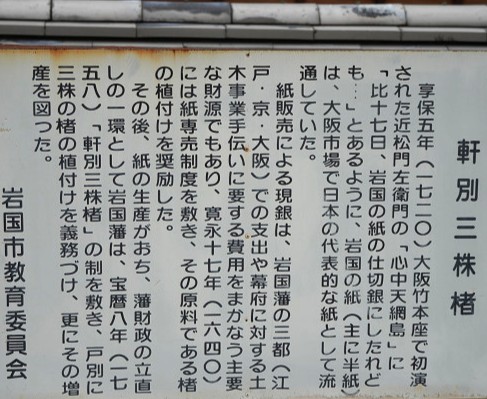 軒別三株楮
享保五年（一七二〇）大阪竹本座で初演
された近松門左衛門の「心中天網島」に
「比十七日、岩国の紙の仕切銀にしたれど
も…」とあるように、岩国の紙（主に半紙）
は、大阪市場で日本の代表的な紙として流
通していた。
紙販売による現銀は、岩国藩の三都（江
戸・京・大阪）での支出や幕府に対する土
木事業手伝いに要する費用をまかなう主要
な財源でもあり、寛永十七年（一六四〇）
には紙専売制度を敷き、その原料である楮
の植付けを奨励した。
その後、紙の生産がおち、藩財政の立直
しの一環として岩国藩は、宝暦八年（一七
五八）「軒別三株楮」の制を敷き、戸別に
三株の楮の植付けを義務づけ、更にその増
産を図った。
岩国市教育委員会